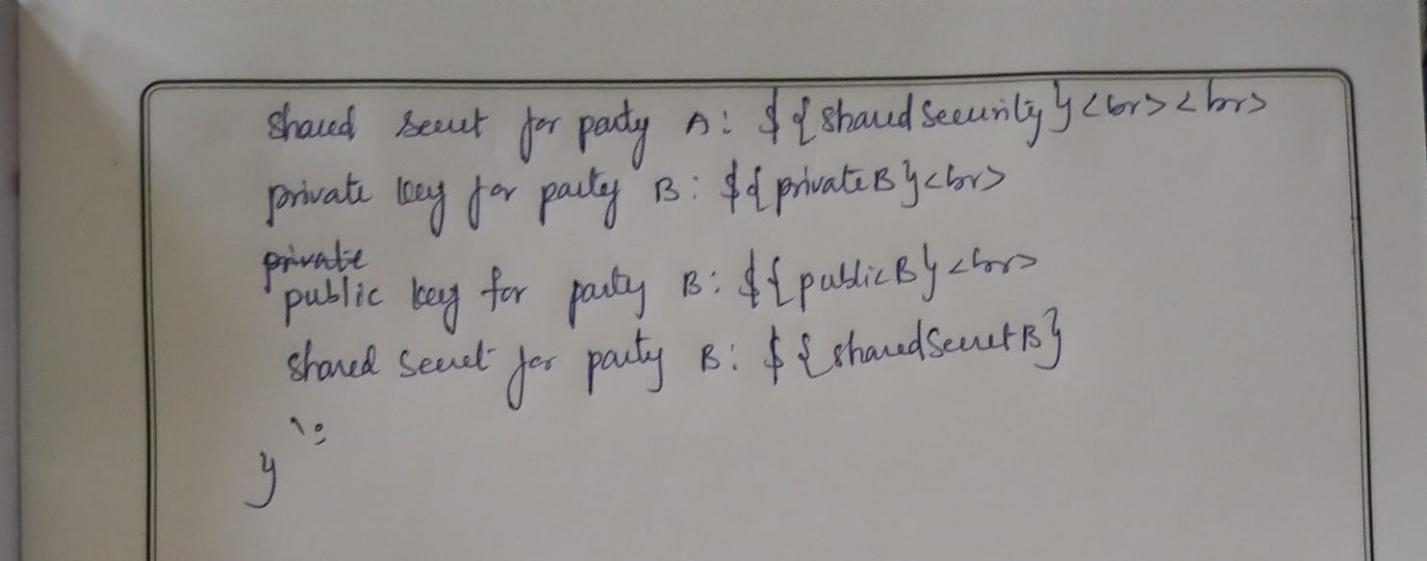 shared secret for party A: ${sharedSecurity}<br><br>
private key for party B: ${privateB}<br>
private
public key for party B: ${publicB}<br>
shared secret for party B: ${sharedSecretB}
`;
}